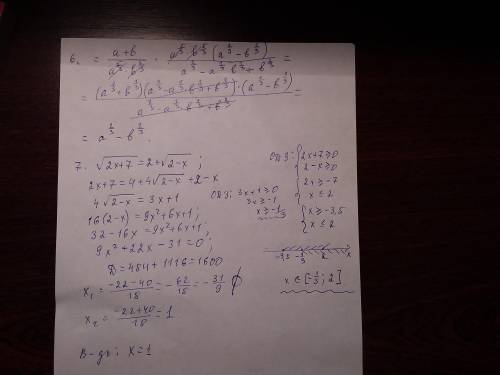 6. = \frac{a+b}{a^{2/3} b^{2/3}} · \frac{a^{2/3} b^{2/3} (a^{1/3} - b^{1/3})}{a^{2/3} - a^{1/3} b^{1/3} + b^{2/3}} =
= \frac{(a^{1/3} + b^{1/3})(a^{2/3} - a^{1/3} b^{1/3} + b^{2/3}) · (a^{1/3} - b^{1/3})}{a^{2/3} - a^{1/3} b^{1/3} + b^{2/3}} =
= a^{2/3} - b^{2/3}.
7. √(2x+7) = 2+√(2-x) ;
2x+7 = 4+4√(2-x) +2-x
4√(2-x) = 3x+1
16(2-x) = 9x²+6x+1;
32-16x = 9x²+6x+1;
9x²+22x-31=0;
D = 484+1116=1600
x₁ = \frac{-22-40}{18} = -\frac{62}{18} = -\frac{31}{9} ∅
x₂ = \frac{-22+40}{18} = 1
В-дь: x=1
ОДЗ: 3x+1≥0
3x≥-1
x≥-\frac{1}{3}
ОДЗ: { 2x+7≥0
2-x≥0
{ 2x≥-7
x≤2
{ x≥-3,5
x≤2
-3,5 -\frac{1}{3} 2 x
x ∈ [-\frac{1}{3}; 2]